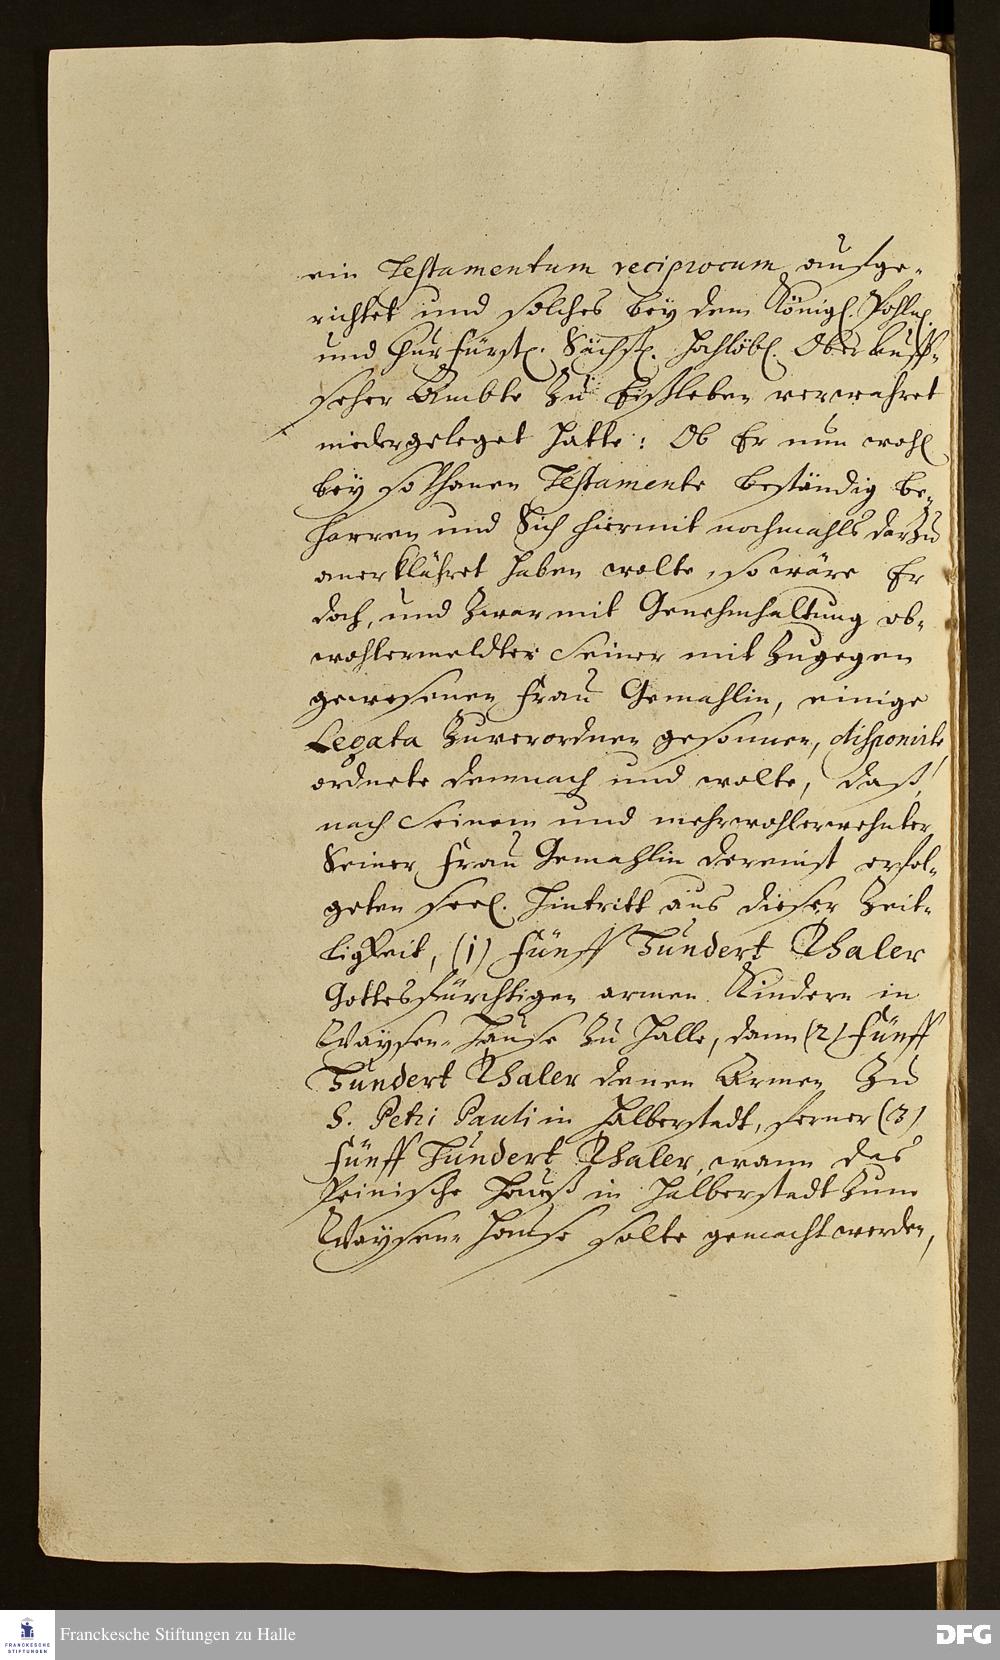 ein Testamentum reciprocum aufge-
richtet und solches bey dem Königl. Pohln.
und Churfürstl. Sächs. Hochlöbl. Ober Auff-
seher Ambte zu Eißleben verwahret
niedergeleget hatte: Ob Er nun wohl
bey sothanen Testamente beständig be-
harren und Sich hiermit nochmahls darzu
anerklähret haben wolte, so wäre Er
doch, und zwar mit Genehmhaltung ob-
wohlermeldter Seiner mit zugegen
gewesenen Frau Gemahlin, einige
Legata zuverordnen gesonnen, disponirte,
ordnete demnach und wolte, daß,
nach Seinem und mehrwohlerwehnter
Seiner Frau Gemahlin dereinst erfol-
geten seel. Hintritt aus dieser Zeit-
ligkeit, (1) Fünff Hundert Thaler
Gottesfürchtigen armen Kindern in
Waysen-Hause zu Halle, dann (2) Fünff
Hundert Thaler denen Armen zu
S. Petri Pauli in Halberstadt, ferner (3)
Fünff Hundert Thaler, wann das
Peinische Hauß in Halberstadt zum
Waysen-Hause solte gemacht werden,
FRANCKESCHE
STIFTUNGEN
Franckesche Stiftungen zu Halle
DFG